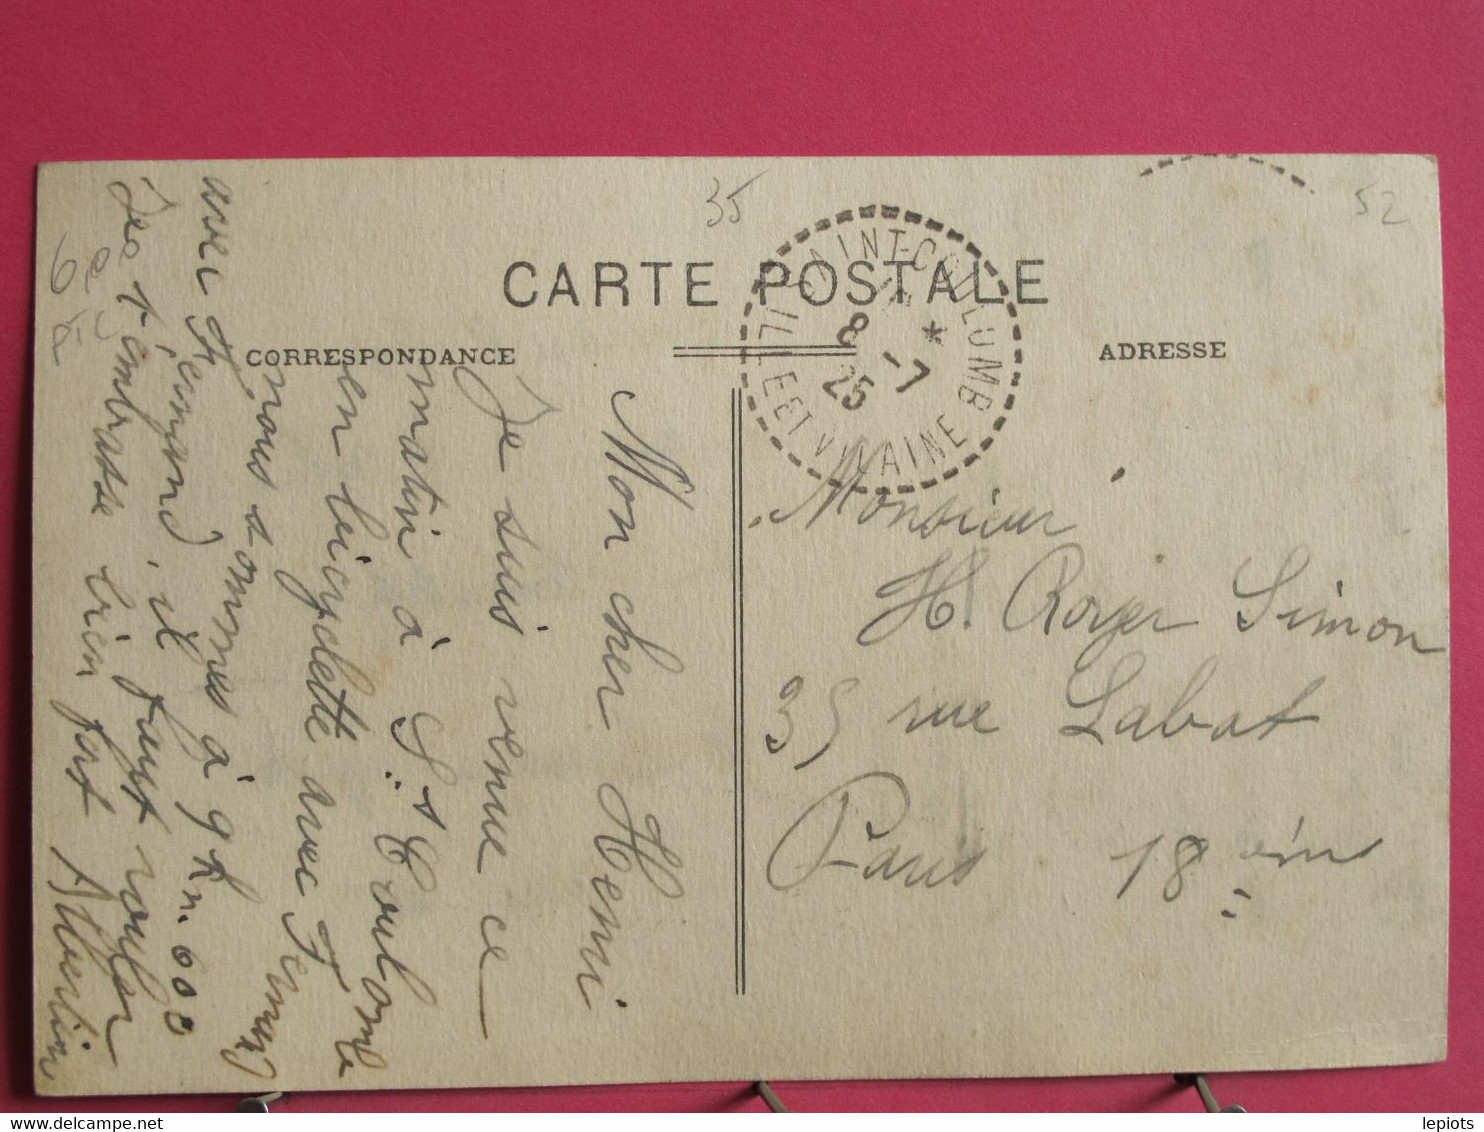 35
52
CARTE POSTALE
CORRESPONDANCE
ADRESSE
SAINT-COULOMB
ILLE ET VILAINE
8 -7
25
*
Mon cher Henri
Je suis venue ce
matin à St Coulomb
en bicyclette avec Fernand
nous sommes à 9 km. 600
avec Fernand, il faut rouler
Je t'embrasse bien fort
Albertine
Monsieur
H. Royer Simon
35 rue Labat
Paris 18 ème
lepiots